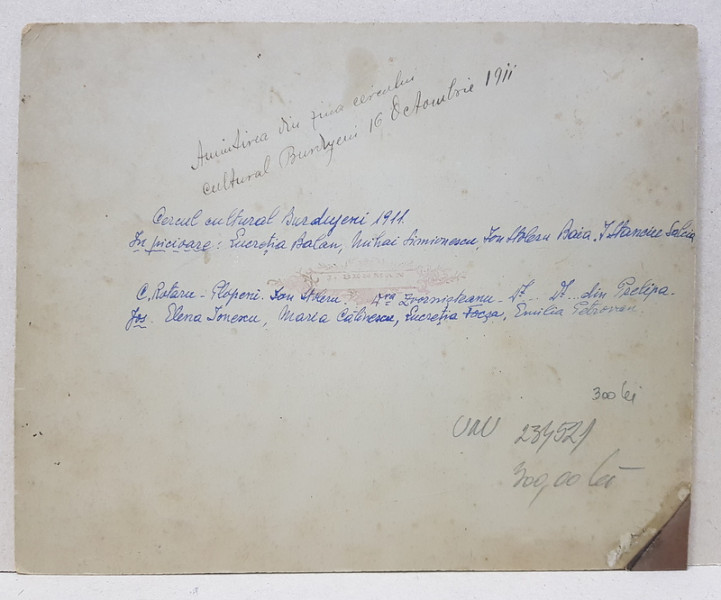 Amintirea din ziua cercului
cultural Burdujeni 16 Octombrie 1911
Cercul cultural Burdujeni 1911.
In picioare: Lucreția Balan, Mihai Simionescu, Ion Stoleru Baia, I Stanciu Salcia
C. Rotaru - Plopeni. Ion Stoleru. Zvorișteanu - din Praclipa.
Jos Elena Ionescu, Maria Călinescu, Lucreția Focșa, Emilia Petrovan.
300 lei
234521
300,00 lei